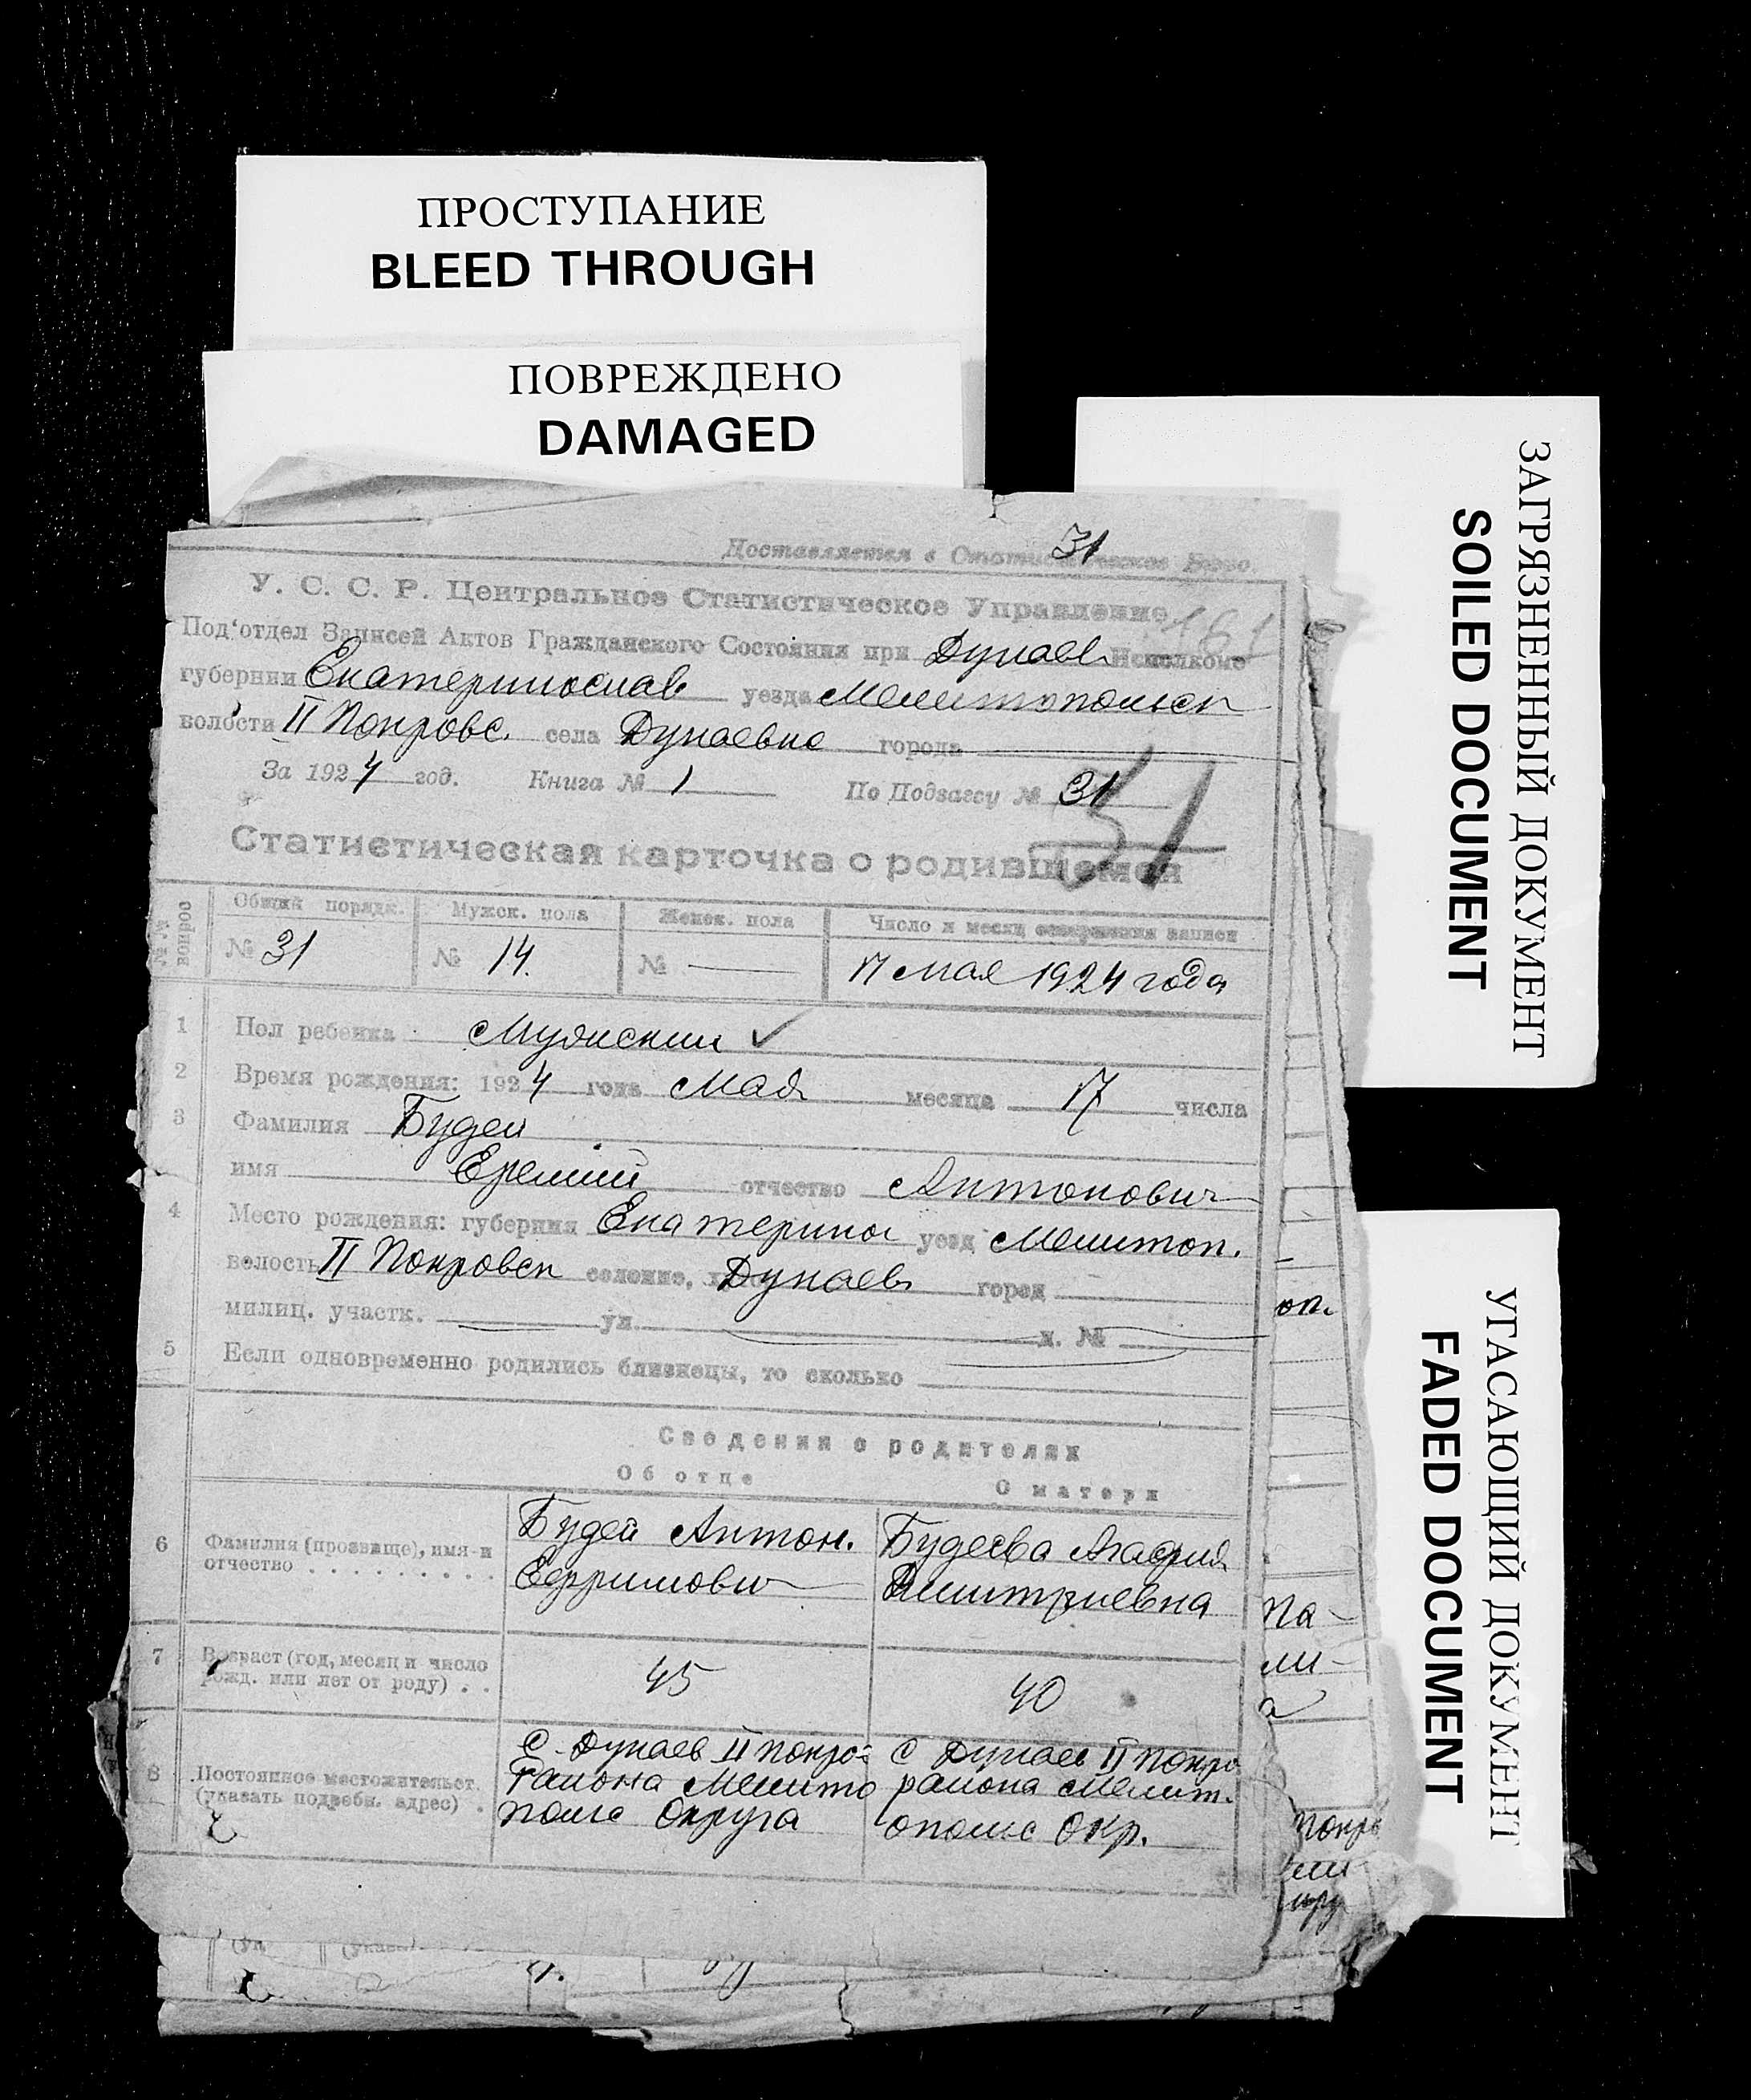 ПРОСТУПАНИЕ
BLEED THROUGH
ПОВРЕЖДЕНО
DAMAGED
ЗАГРЯЗНЕННЫЙ ДОКУМЕНТ
SOILED DOCUMENT
УГАСАЮЩИЙ ДОКУМЕНТ
FADED DOCUMENT
31
Доставляется в Статистическое Бюро.
У. С. С. Р. Центральное Статистическое Управление
161
Под'отдел Записей Актов Гражданского Состояния при Дунаев Исполкоме
губернии Екатеринослав уезда Мелитопольск
волости II Покровс. села Дунаевка города
За 1924 год. Книга № 1 По Подзагсу № 31
31
Статистическая карточка о родившемся
№№ вопрос
Общий порядк. Мужск. пола Женск. пола Число и месяц совершения записи
№ 31 № 14. № — 17 мая 1924 года
1 Пол ребенка Мужский
2 Время рождения: 1924 года Мая месяца 17 числа
3 Фамилия Будей
имя Еремий отчество Антонович
4 Место рождения: губерния Екатерино уезд Мелитоп.
волость II Покровск селение, Дунаев город
милиц. участк. ул. д. №
5 Если одновременно родились близнецы, то сколько
Сведения о родителях
Об отце О матери
6 Фамилия (прозвище), имя и отчество
Будей Антон. Ефримович
Будеева Агафия Дмитриевна
7 Возраст (год, месяц и число рожд. или лет от роду)
45 40
8 Постоянное местожительст. (указать подробн. адрес)
С. Дунаев II Покро-
района Мелито
польс Округа
С Дунаев II Покро
района Мелит.
ополс Окр.
оп.
па-
ли-
а
Покро
ели
кру